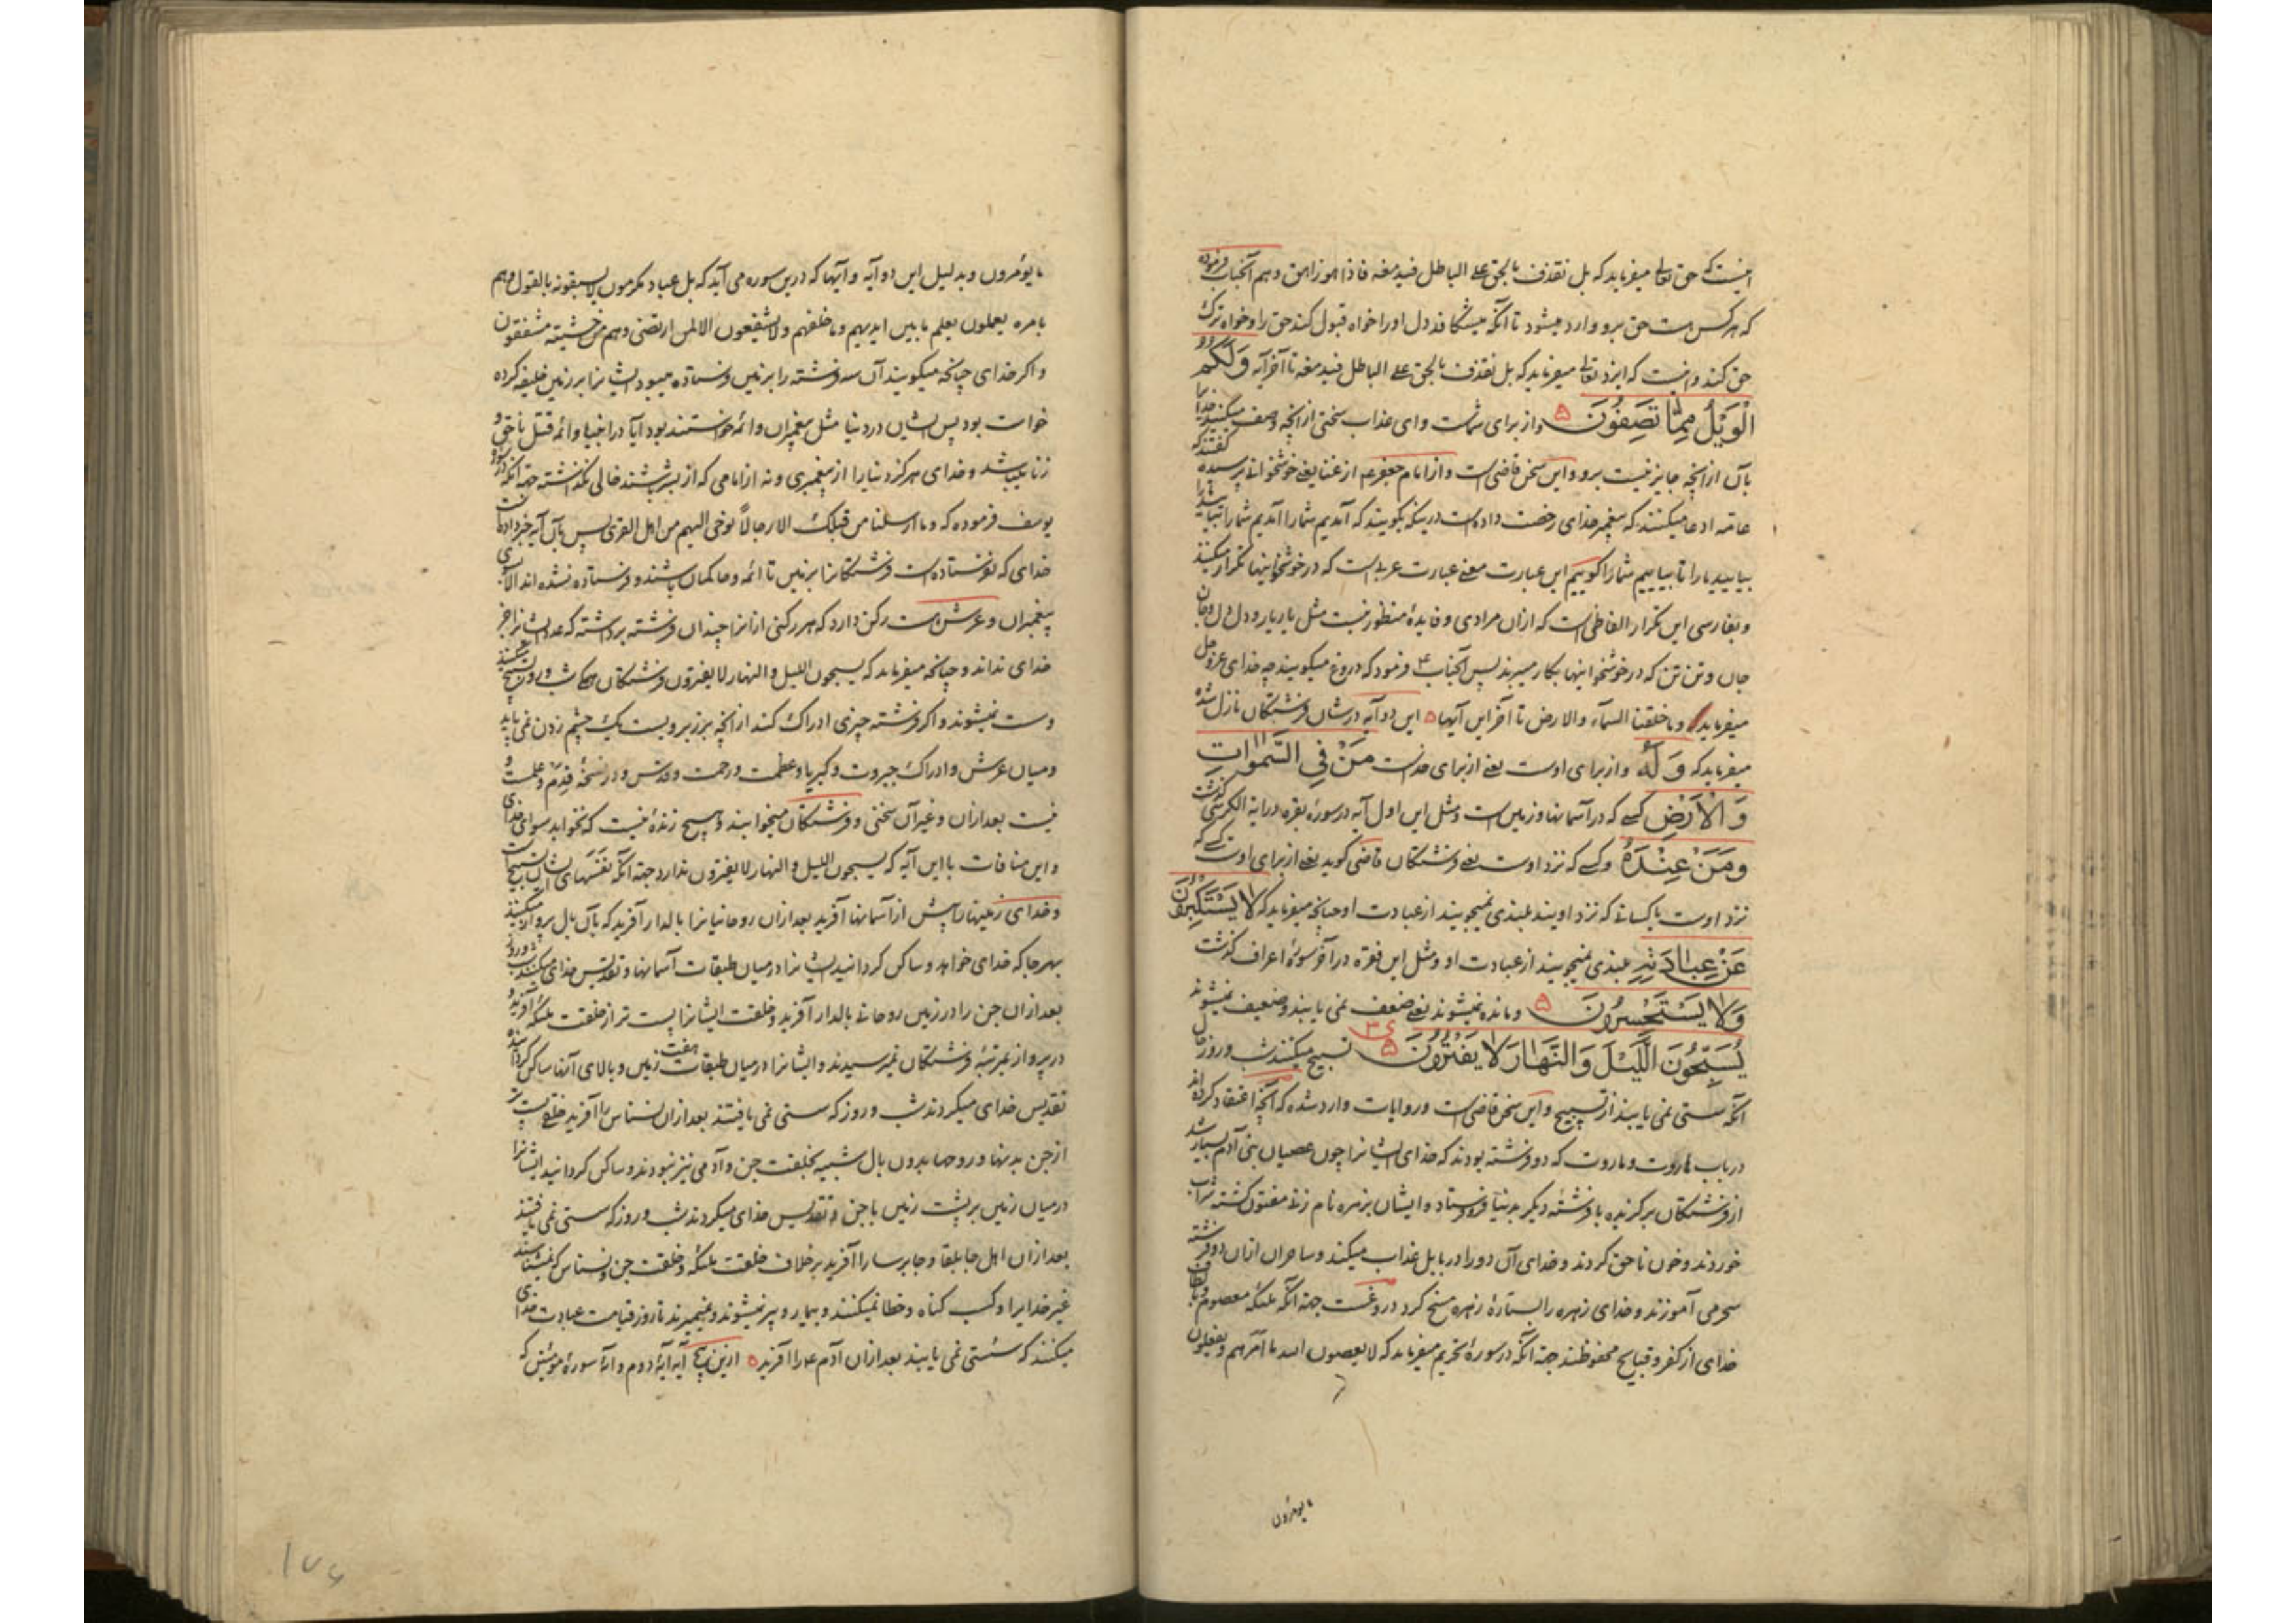 اینست که حق تعالی میفرماید که بل نقذف بالحق علی الباطل فیدمغه فاذا هو زاهق و هم آنجناب فرموده
که هر کس هست حق برو وارد میشود تا آنکه میشکافد دل او را خواه قبول کند حق را و خواه ترک
حق کند و اینست که ایزد تعالی میفرماید که بل نقذف بالحق علی الباطل فیدمغه تا آخر آیه وَلَکُمُ
الْوَیْلُ مِمّٰا تَصِفُونَ ۵ و از برای شماست وای عذاب سختی از آنچه وصف میکنید خدا را
بآن از آنچه جایز نیست برو و این سخن قاضی است و از امام جعفر ع از غنا یعنی خوشخوانی پرسیده گفتند که
عامه ادعا میکنند که پیغمبر خدای رخصت داده است در اینکه بگویند که آمدیم شما را آمدیم شما را
بیایید ما را تا بیاییم شما را گوییم این عبارت معنی عبارت عربی است که در خوشخوانیها تکرار میکنند
و بفارسی این تکرار الفاظی است که ازان مرادی و فایدهٔ منظور نیست مثل یار یار و دل دل و جان
جان و تن تن که در خوشخوانیها بکار میبرند پس آنجناب ع فرمود که دروغ میگویند چه خدای عز و جل
میفرماید و ما خلقنا السمآء والارض تا آخر این آیها ۵ این دو آیه در شان فرشتگان نازل شده
میفرماید که وَ لَهُ و از برای اوست یعنی از برای خداست مَنْ فِی السَّمٰوٰاتِ
وَ الْاَرْضِ کسی که در آسمانها و زمین است و مثل این اول آیه در سورهٔ بقره در آیة الکرسی گذشت
وَمَنْ عِنْدَهُ و کسی که نزد اوست یعنی فرشتگان قاضی گوید یعنی از برای اوست کسی که
نزد اوست یا کسانی که نزد اویند بلندی نمیجویند از عبادت او چنانچه میفرماید که لاٰ یَسْتَکْبِرُونَ
عَنْ عِبٰادَتِهِ بلندی نمیجویند از عبادت او و مثل این فقره در آخر سورهٔ اعراف گذشت
وَلاٰ یَسْتَحْسِرُونَ ۵ و مانده نمیشوند یعنی ضعف نمی یابند و ضعیف نمیشوند
یُسَبِّحُونَ اللَّیْلَ وَ النَّهٰارَ لاٰ یَفْتُرُونَ ۵ تسبیح میکنند شب و روز حال
آنکه سستی نمی یابند از تسبیح و این سخن قاضی است و روایات وارد شده که آنچه اعتقاد کرده اند
در باب هاروت و ماروت که دو فرشته بودند که خدای ایشانرا چون عصیان بنی آدم بسیار شد
از فرشتگان برگزیده با فرشتهٔ دیگر بدنیا فرستاد و ایشان بزهره نام زنی مفتون گشته شراب
خوردند و خون ناحق کردند و خدای آن دو را در بابل عذاب میکند و ساحران ازان دو فرشته
سحر می آموزند و خدای زهره را بستارهٔ زهره مسخ کرد دروغست جهة آنکه ملئکه معصوم و بالطاف
خدای از کفر و قبایح محفوظند جهة آنکه در سورهٔ تحریم میفرماید که لا یعصون الله ما امرهم و یفعلون
ما یؤمرون
ما یؤمرون و بدلیل این دو آیه و آیها که درین سوره می آید که بل عباد مکرمون لا یسبقونه بالقول و هم
بامره یعملون یعلم ما بین ایدیهم و ما خلفهم و لا یشفعون الا لمن ارتضی و هم من خشیته مشفقون
و اگر خدای چنانچه میگویند آن سه فرشته را بزمین فرستاده میبود ایشانرا بر زمین خلیفه کرده
خواست بود پس ایشان در دنیا مثل پیغمبران و ائمه خواستند بود آیا در انبیا و ائمه قتل ناحق و
زنا میباشد و خدای هرگز دنیا را از پیغمبری و نه از امامی که از بشر باشند خالی نگذاشته جهة آنکه در سورهٔ
یوسف فرموده که و ما ارسلنا من قبلک الا رجالاً نوحی الیهم من اهل القری پس بآن آیه خبر داده است
خدای که نفرستاده است فرشتگانرا بزمین تا ائمه و حاکمان باشند و فرستاده نشده اند الا بسوی
پیغمبران و عرش هشت رکن دارد که هر رکنی ازانرا چندان فرشته برداشته که عدد ایشانرا جز
خدای نداند و چنانچه میفرماید که یسبحون اللیل و النهار لا یفترون فرشتگان همگی شب و روز تسبیح میکنند
و سست نمیشوند و اگر فرشته چیزی ادراک کند از آنچه بر زبر اوست یک چشم زدن نمی پاید
و میان عرش و ادراک جبروت و کبریا و عظمت و رحمت و قدس و در نسخهٔ قِدَم و علمست و
نیست بعد ازان و غیر آن سخنی و فرشتگان میخوابند و هیچ زندهٔ نیست که نخوابد سوای خدای
و این منافات با این آیه که یسبحون اللیل و النهار لا یفترون ندارد جهة آنکه نفَسهای ایشان تسبیح است
و خدای زمینها را پیش از آسمانها آفرید بعد ازان روحانیانرا بالدار آفرید که بآن بال پرواز میکنند
بهر جا که خدای خواهد و ساکن گردانید ایشانرا در میان طبقات آسمانها و تقدیس خدای میکنند شب و روز
بعد ازان جن را در زمین روحانی بالدار آفرید و خلقت ایشانرا پست تر از خلقت ملئکه آفرید و
در پرواز بمرتبهٔ فرشتگان نمیرسیدند و ایشانرا در میان طبقات هفت زمین و بالای آنها ساکن گردانیده
تقدیس خدای میکردند شب و روز که سستی نمی یافتند بعد ازان نسناس را آفرید خلقتی پست تر
از جن بدنها و روحها بدون بال شبیه بخلقت جن و آدمی نیز نبودند و ساکن گردانید ایشانرا
در میان زمین بر پشت زمین با جن و تقدیس خدای میکردند شب و روز که سستی نمی یافتند
بعد ازان اهل جابلقا و جابرسا را آفرید بر خلاف خلقت ملئکه و خلقت جن و نسناس که نمیشناسند
غیر خدایرا و کسب گناه و خطا نمیکنند و بیمار و پیر نمیشوند و نمیمیرند تا روز قیامت عبادت خدای
میکنند که سستی نمی یابند بعد ازان آدم ع را آفرید ۵ ازین پنج آیه آیهٔ دوم و آیهٔ سورهٔ مؤمنین که
۱۷۶